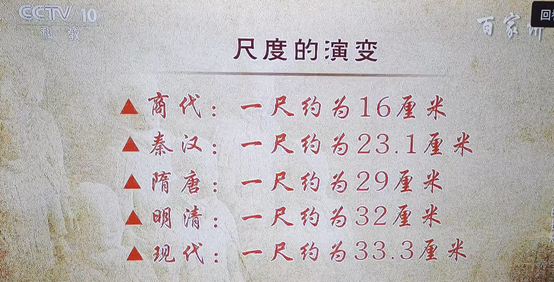 CCTV 10
百家讲
回
尺度的演变
▲商代：一尺约为16厘米
▲秦汉：一尺约为23.1厘米
▲隋唐：一尺约为29厘米
▲明清：一尺约为32厘米
▲现代：一尺约为33.3厘米